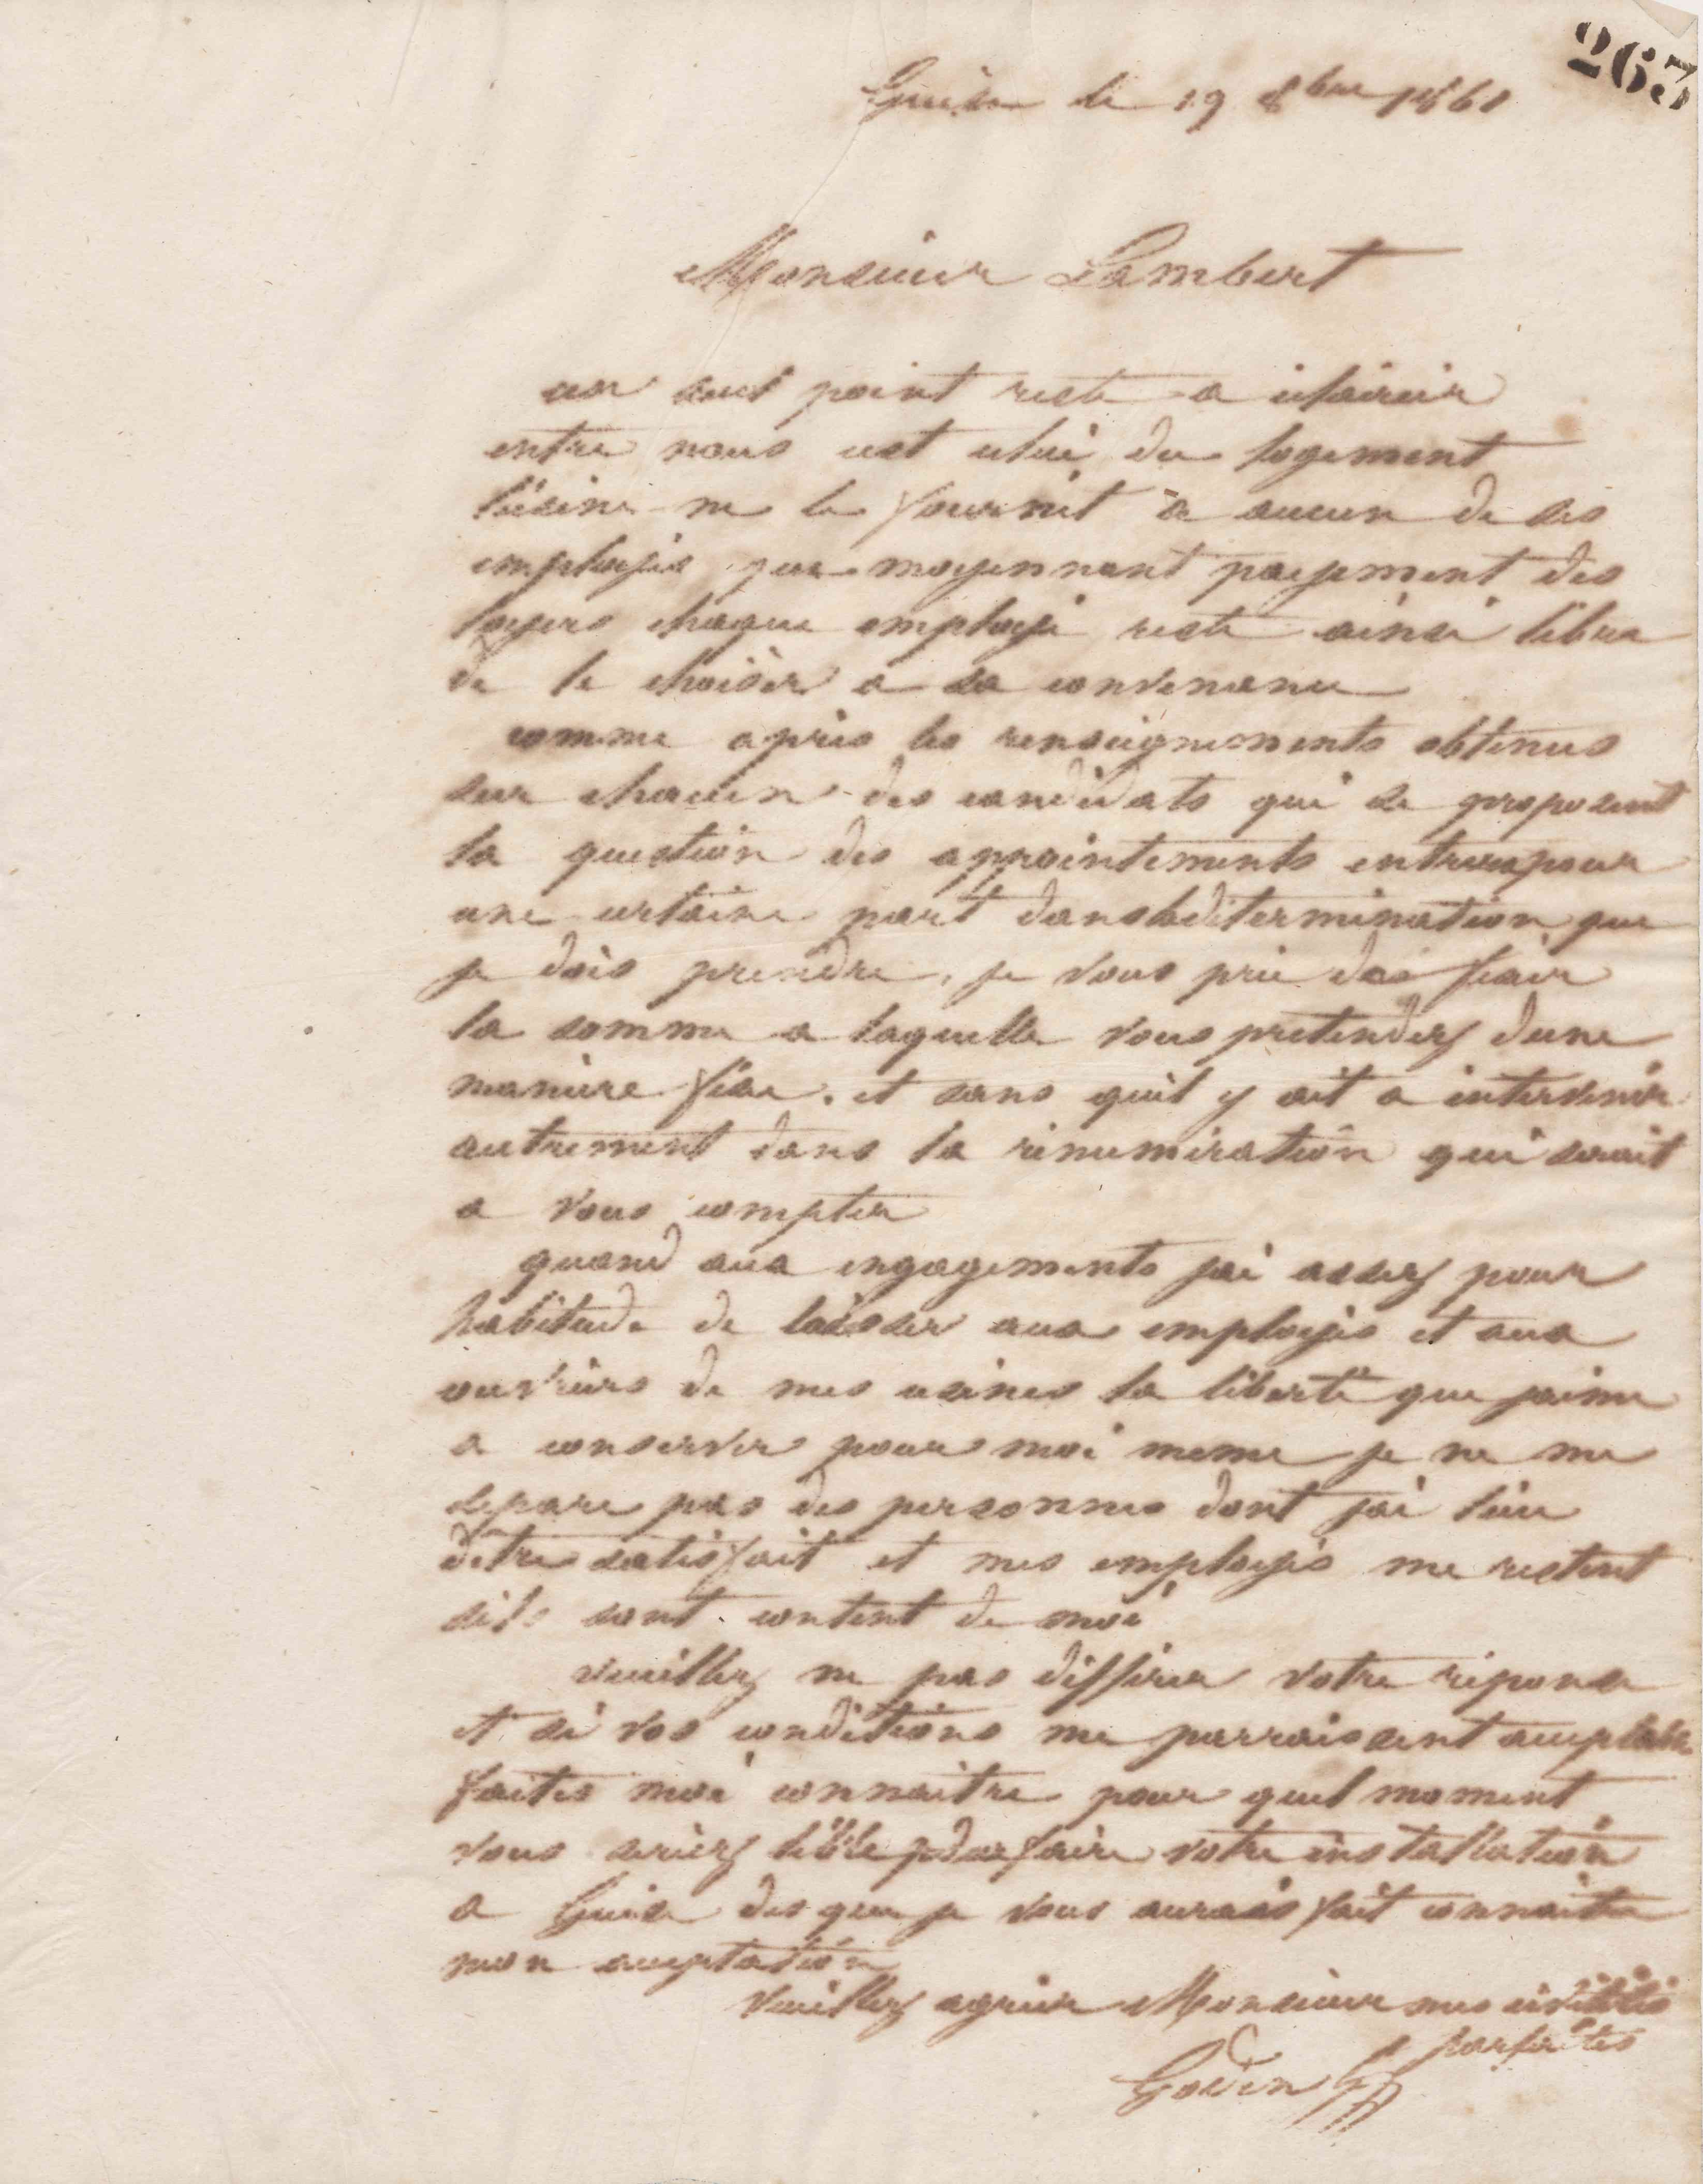 263
Guise le 19 8bre 1860
Monsieur Lambert
un seul point reste a éclaircir
entre nous cest celui du logement
lusine ne le fournit a aucun de ses
employés que moyennant payement des
loyers chaque employé reste ainsi libre
de le choisir a sa convenance
comme apres les renseignements obtenus
sur chacun des candidats qui se proposent
la question des appointements entrera pour
une certaine part dans la détermination que
je dois prendre, je vous prie de fixer
la somme a laquelle vous pretendez dune
maniere fixe. et sans quil y ait a intervenir
autrement dans la rénumération qui serait
a vous compter
quand aux engagements jai assez pour
habitude de laisser aux employés et aux
ouvriers de mes usines la liberté que jaime
a conserver pour moi meme je ne me
separe pas des personnes dont jai lieu
detre satisfait et mes employés me restent
sils sont content de moi
veuillez ne pas différer votre réponse
et si vos conditions me parraissent acceptables
faites moi connaitre pour quel moment
vous seriez libre pour faire votre installation
a Guise des que je vous aurais fait connaitre
mon acceptation
Veuillez agréer Monsieur mes civilités
parfaites
Godin